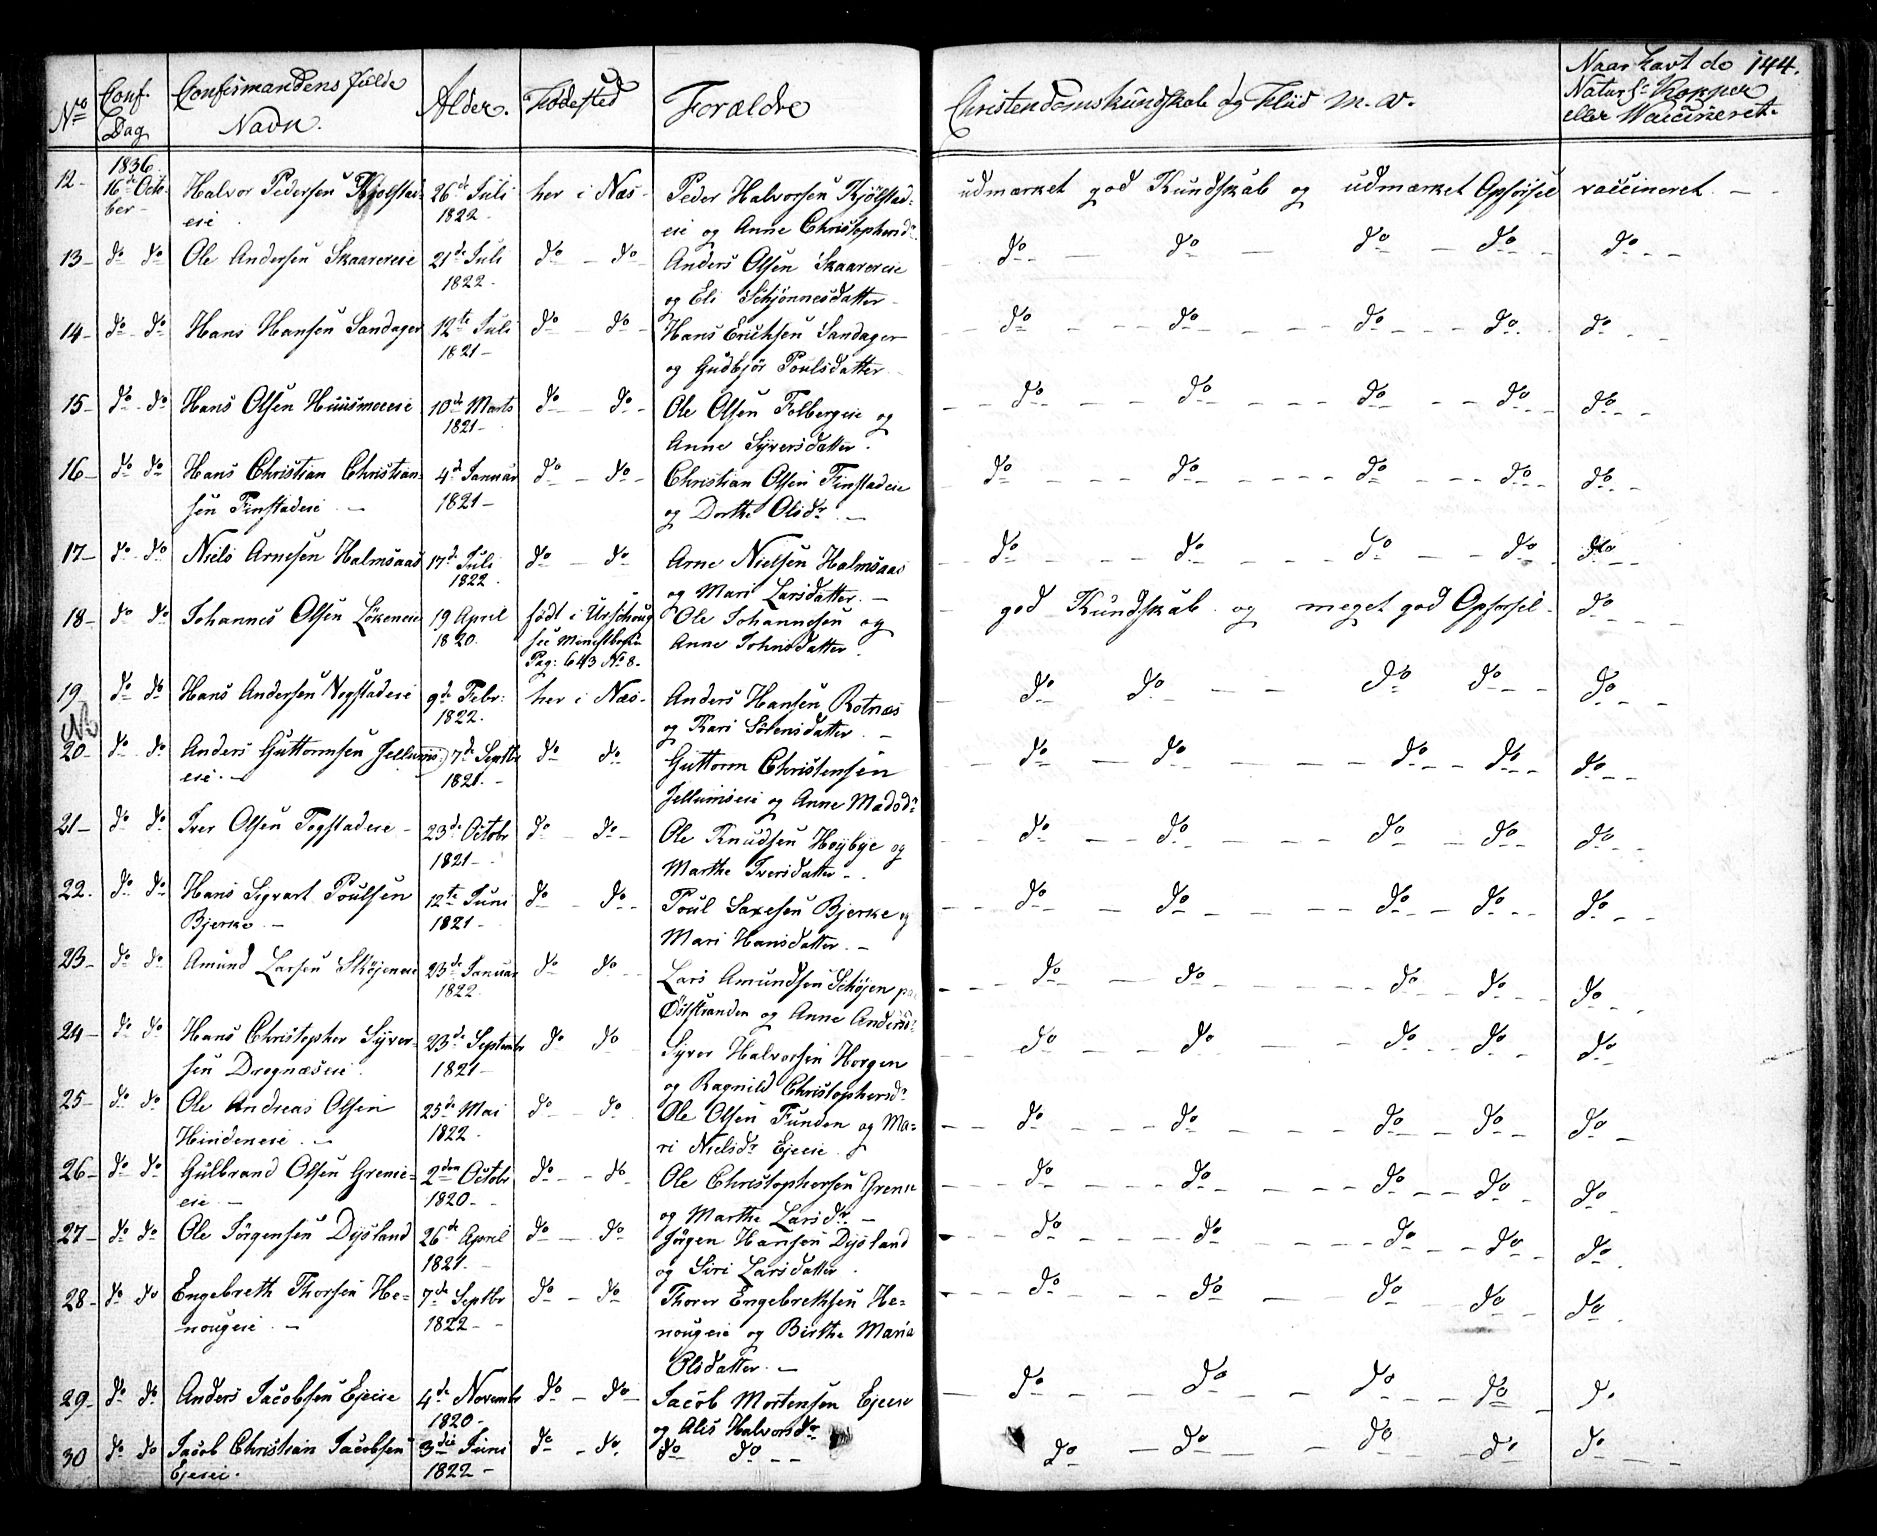 144.
No
Conf. Dag
Confirmandens fulde Navn.
Alder.
Fødested
Forældre
Christendomskundskab og Fliid m. v.
Naar havt de Naturl: Kopper eller Vaccineret.
1836
12 - 16de Octo- Halvor Pedersen Kjølstad- 26de Juli her i Næs - Peder Halvorsen Kjølstad- udmærket god Kundskab og udmærket Opførsel vaccineret -
ber - eie 1822 eie og Anne Christophersdr
13 - do do Ole Andersen Skaarereie 21de Juli do - do - Anders Olsen Skaarereie do - do - do - do - do
1822 - og Eli Schjønnesdatter -
14 - do - do - Hans Hansen Sandager 12te Juli do - do - Hans Erichsen Sandager do do do do do
1821 - og Gudbjør Poulsdatter
15 - do - do - Hans Olsen Huusmoeeie 10de Marts do - do - Ole Olsen Folbergeie og do do do do do
1821 - Anne Syversdatter.
16 - do do Hans Christian Christian- 4de Januar do - do - Christian Olsen Finstadeie do do do do do
sen Finstadeie - 1821 - og Dorthe Olsdr -
17 - do - do Niels Arnesen Halmsaas 17de Juli do - do Arne Nielsen Halmsaas do do do do do
1822 - og Mari Larsdatter. -
18 - do do Johannes Olsen Løkeneie 19 April født i Urschoug Ole Johannesen og god Kundskab og meget god Opførsel - do
1820. see Ministbogen Anne Johnsdatter.
Pag: 643 No 8 -
19 do do Hans Andersen Vogstadeie 9de Febr: her i Næs - Anders Hansen Rotnæs do do do do do
1822. og Kari Sørensdatter. -
NB
20 - do - do Anders Guttormsen Jellums- 7de Septbr do do Guttorm Christensen do do do do do
eie. - 1821. - Jellumseie og Anne Madsdr
21 - do do Iver Olsen Fogstadeie - 23de Octobr do - do - Ole Knudsen Høybye og do do do do do
1821 - Marthe Iversdatter -
22. do do Hans Sigvart Poulsen 12te Juni do - do Poul Saxesen Bjerke og do do do do do
Bjerke - 1821 - Mari Hansdatter. -
23 - do do Amund Larsen Skøjeneie 23de Januar do do Lars Amundsen Schøjen paa do do do do do
1822. Øststranden og Anne Andersdr
24 - do do Hans Christopher Syver- 23de Septembr do do Syver Halvorsen Horgen do do do do do
sen Drognæseie. 1821 - og Ragnild Christophersdr
25 - do do Ole Andreas Olsen 25de Mai do - do Ole Olsen Funden og Ma- do do do do do
Hindeneie. - 1822. ri Nielsdr Ejeeie.
26 - do do Gulbrand Olsen Greni- 2den Octobr do - do Ole Christophersen Greni do do do do do
eie - 1820 - og Marthe Larsdr -
27 - do do Ole Jørgensen Dysland 26de April do - do Jørgen Hansen Dysland do do do do do
1821. - og Siri Larsdatter.
28 - do do Engebreth Thorsen He- 7de Septbr do - do Thorer Engebrethsen He- do do do do do
nougeie. - 1822 - nougeie og Birthe Maria
Olsdatter. -
29 - do do Anders Jacobsen Ejeeie 4de Novembr do - do - Jacob Mortensen Ejeeie do do do do do
1820 - og Alis Halvorsdr
30 do do Jacob Christian Jacobsen 3die Juni do - do do do - - do do do do do
Ejeeie. 1822 -